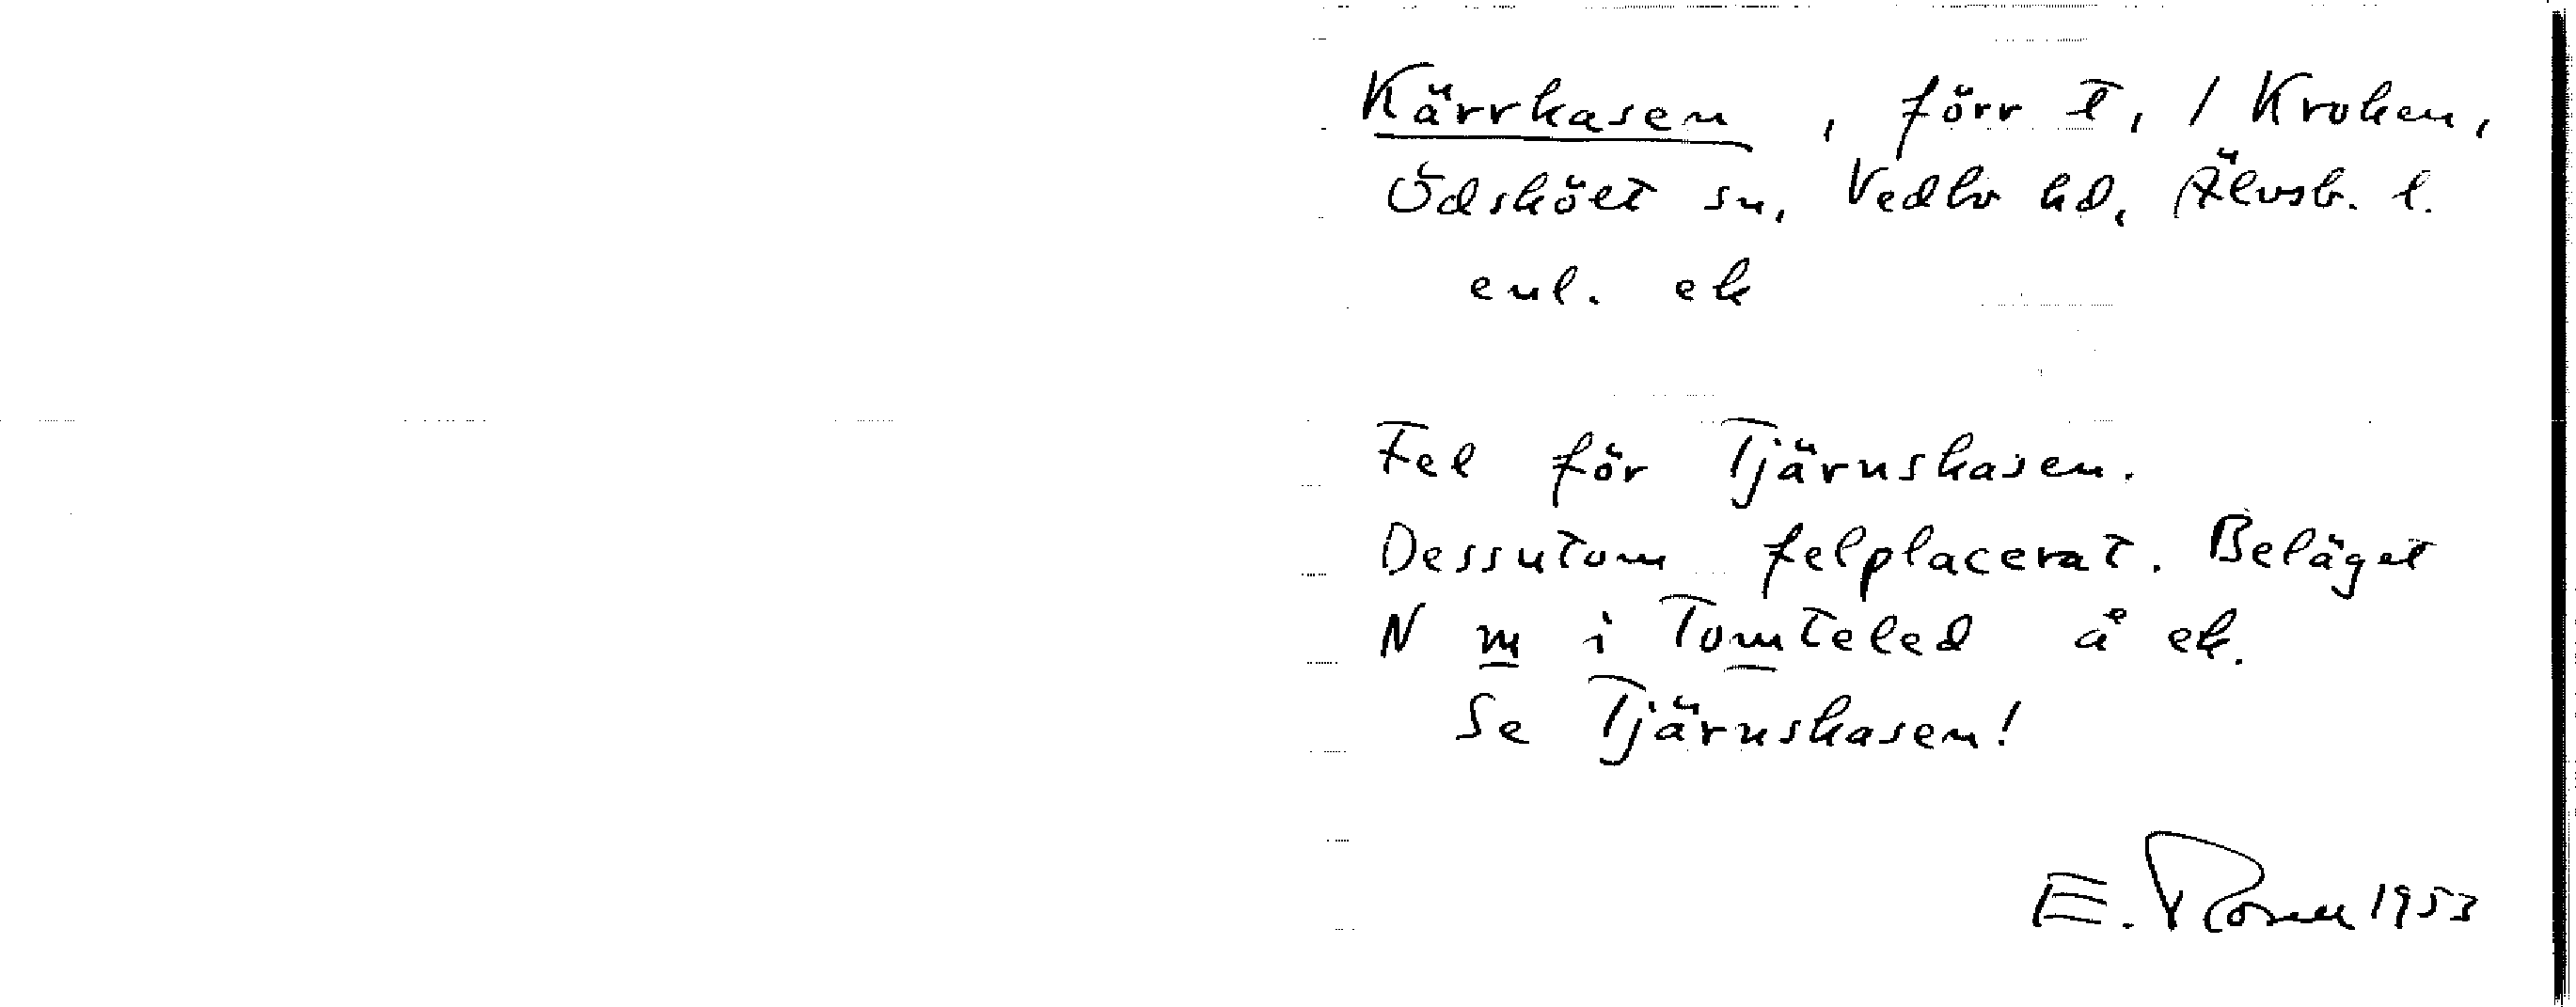 Kärrkasen, förr t, / Kroken,
Ödskölt sn, Vedbo hd, Älvsb. l.
enl. ek
Fel för Tjärnskasen.
Dessutom felplacerat. Beläget
N m i Tomteled å ek.
Se Tjärnskasen!
E. Rosell 1953